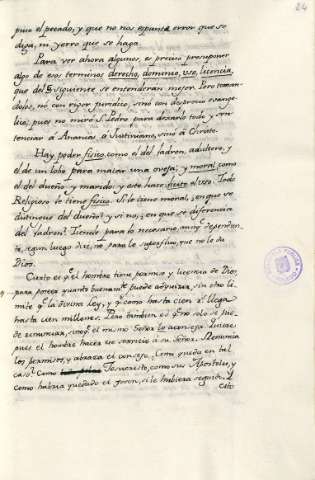 24
pues el pecado, y que no nos espanta error que se
diga, ni yerro que se haga.
Para ver ahora algunos, es preciso presuponer
algo de esos terminos derecho, dominio, uso, licencia,
que del § siguiente se entenderan mejor. Pero toman-
dolos, no con rigor juridico, sino con desprecio evange-
lico; pues no miró S. Pedro para dexarlo todo y sen-
tenciar á Ananias á Justiniano, sinó á Christo.
Hay poder fisico, como el del ladron, adultero, y
el de un lobo para matar una oveja; y moral como
el del dueño y marido, y este hace licito al uso. Todo
Religioso le tiene fisico. Si le tiene moral, ¿en que se
distingue del dueño? y si no, ¿en que se diferencia
del ladron? Tienele para lo necesario, muy dependien-
te, segun luego diré, no para lo superfluo, que no lo da
Dios.
Cierto es q.e el hombre tiene permiso y licencia de Dios,
para poseer quanto buenam.te puede adquirir, sin otro li-
mite q.e la divina Ley, y q.e como hasta cien r.s llega
hasta cien millones. Pero tambien es q.e no solo se pue-
de renunciar, sino q.e el mismo Señor lo aconseja. Quiere
pues el hombre hacer ese servicio á su Señor. Renuncia
los permisos, y abraza el consejo. ¿Como queda en tal
caso? Como Jesucristo, como sus Apostoles, y
como habria quedado el joven, si le hubiera seguido. Y
esto